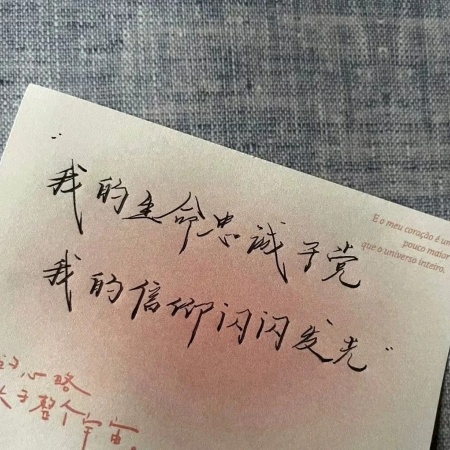 "我的生命忠诚于党
我的信仰闪闪发光"
E o meu coração é um
pouco maior
que o universo inteiro.
心略
大于整个宇宙。